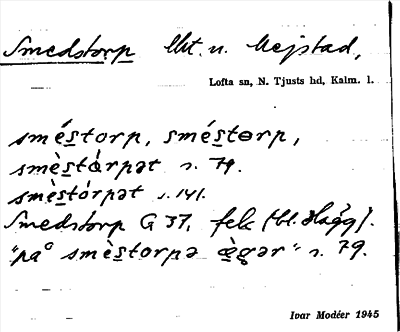 Smedstorp lht. u. Mejstad,
Lofta sn, N. Tjusts hd, Kalm. l.
sméstorp, sméstɵrp,
smèstórpət s. 79.
smèstórpət s. 141.
Smedstorp G 37, felk (bl. Hägg).
"på smèstorpə ǽgər" s. 79.
Ivar Modéer 1945